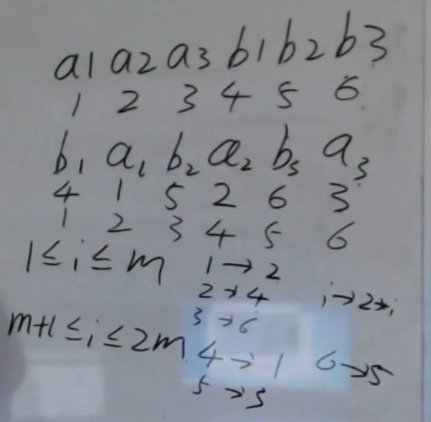 a1 a2 a3 b1 b2 b3
1 2 3 4 5 6
b1 a1 b2 a2 b3 a3
4 1 5 2 6 3
1 2 3 4 5 6
1≤i≤m 1→2
2→4 i→2*i
3→6
m+1≤i≤2m 4→1 6→5
5→3